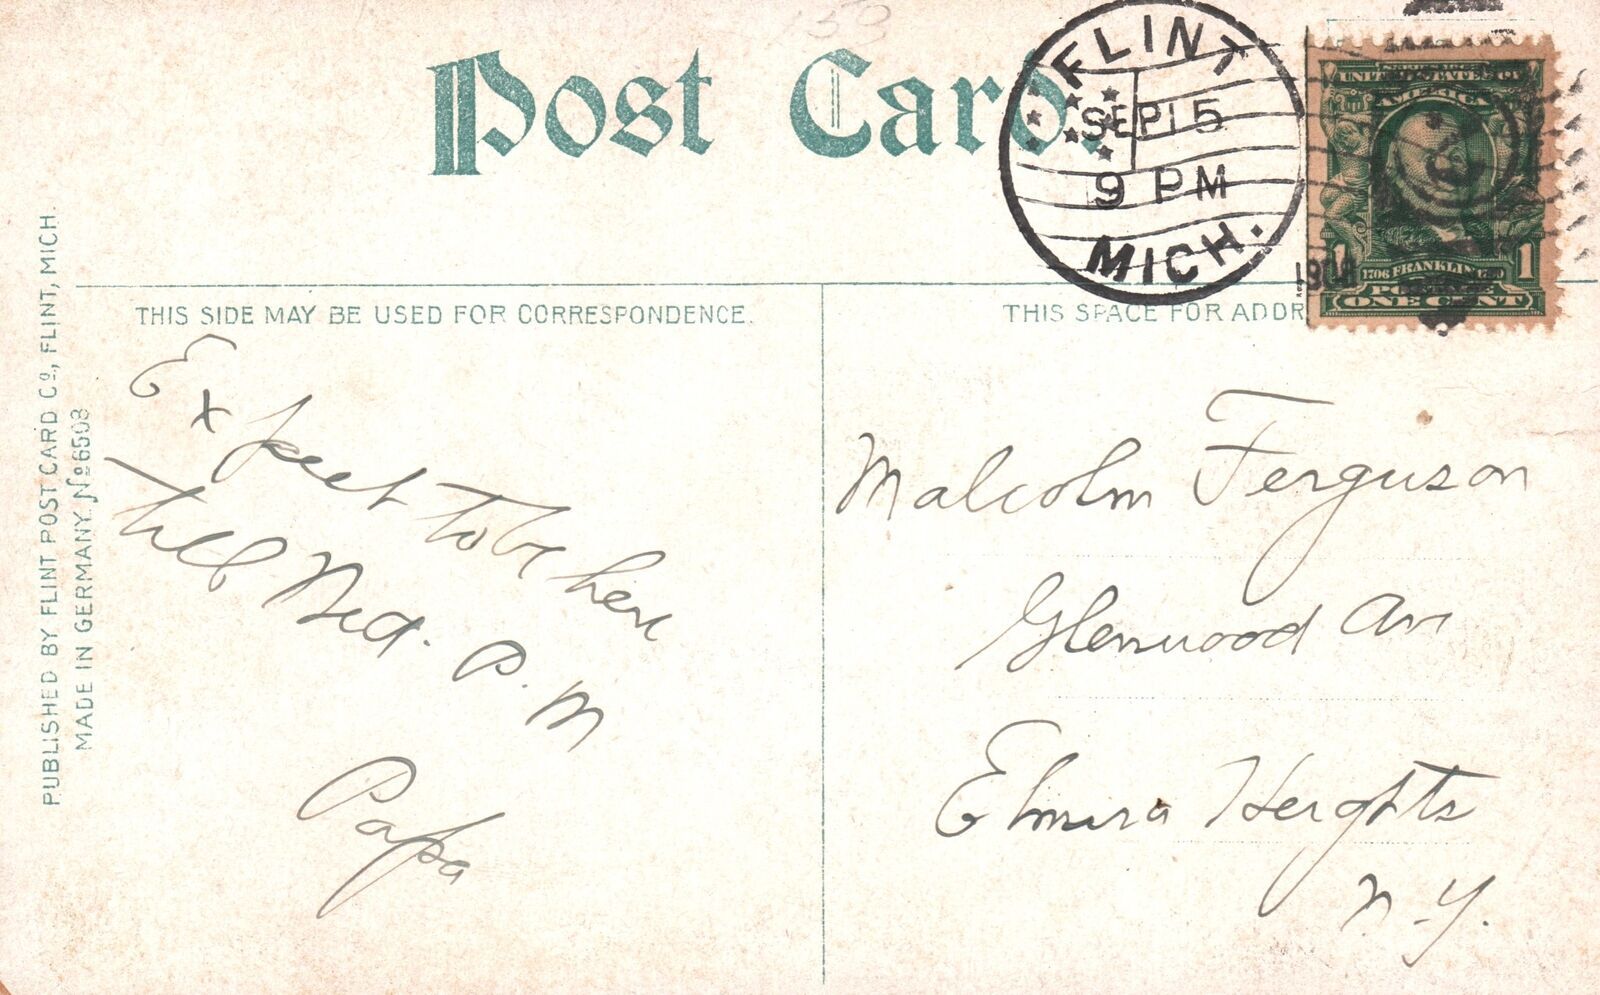 Post Card.
FLINT
SEP 15
9 PM
MICH.
UNITED STATES OF
AMERICA
1706 FRANKLIN 1790
1 1
POSTAGE
ONE CENT
THIS SIDE MAY BE USED FOR CORRESPONDENCE.
THIS SPACE FOR ADDR
PUBLISHED BY FLINT POST CARD Co., FLINT, MICH.
MADE IN GERMANY. No 6508
Expect to be here
till Wed. P.M
Papa
Malcolm Ferguson
Glenwood Ave
Elmira Heights
N.Y.